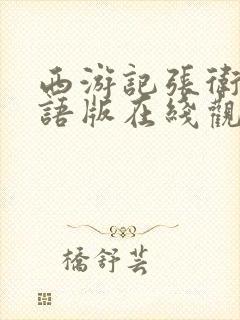 西游記張衛
語版在綫觀
橋舒芸